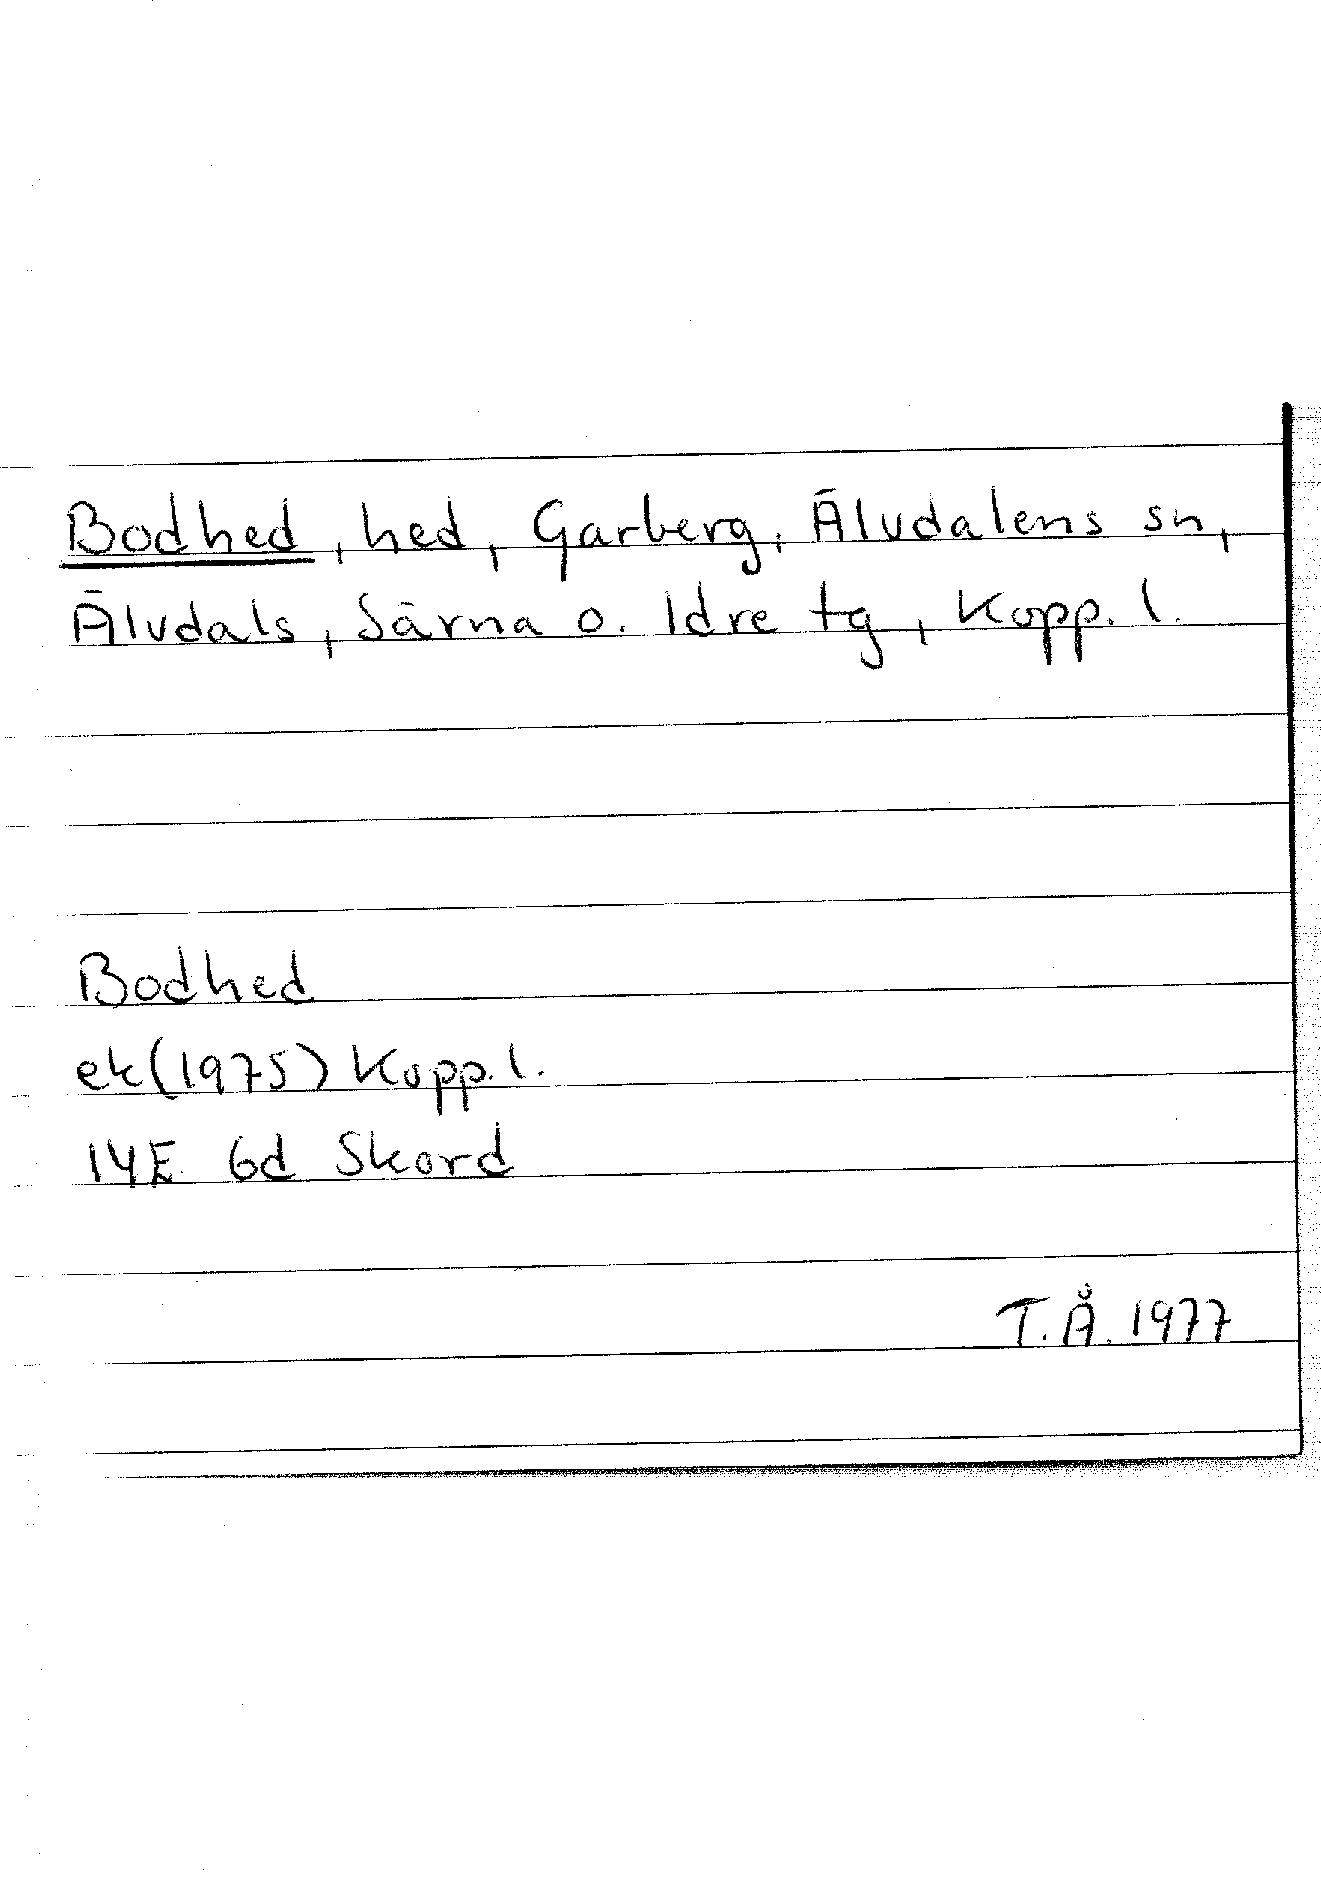 Bodhed, hed, Garberg, Älvdalens sn,
Älvdals, Särna o. Idre tg, Kopp. l.
Bodhed
ek(1975) Kopp. l.
14E 6d Skord
T.Å. 1977